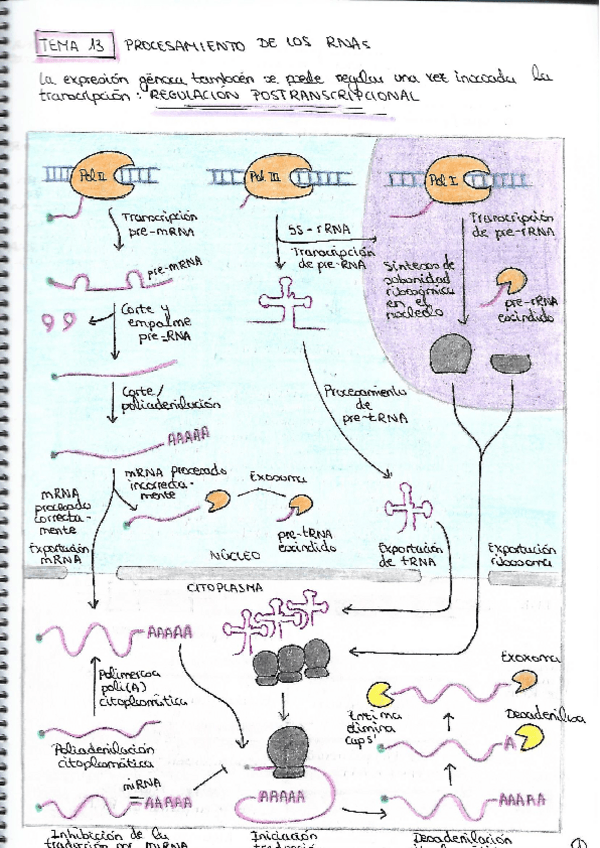 TEMA 13 PROCESAMIENTO DE LOS RNAs
La expresión génica también se puede regular una vez iniciada la
transcripción: REGULACIÓN POSTRANSCRIPCIONAL
Pol II
Pol III
Pol I
Transcripción
pre-mRNA
5S-rRNA
Transcripción
de pre-RNA
Transcripción
de pre-rRNA
pre-mRNA
Síntesis de
subunidad
ribosómica
en el
nucleolo
pre-rRNA
escindido
Corte y
empalme
pre-RNA
Corte/
poliadenilación
Procesamiento
de
pre-tRNA
AAAAA
mRNA procesado
incorrecta-
mente
Exosoma
mRNA
procesado
correcta-
mente
pre-tRNA
escindido
Exportación
mRNA
NÚCLEO
Exportación
de tRNA
Exportación
ribosoma
CITOPLASMA
AAAAA
Exoxoma
Polimerasa
poli(A)
citoplasmática
Enzima
elimina
cap5'
Desadenilasa
A
Poliadenilación
citoplasmática
miRNA
AAAAA
AAAAA
AAAAA
Inhibición de la
traducción por miRNA
Iniciación
traducción
Deadenilación
1